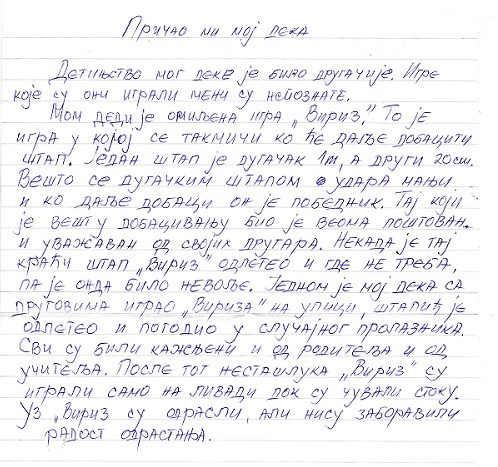 Причао ми мој дека
Детињство мог деке је било другачије. Игре
које су они играли мени су непознате.
Мом деди је омиљена игра „Вириз." То је
игра у којој се такмичи ко ће даље добацити
штап. Један штап је дугачак 1m, а други 20cm.
Вешто се дугачким штапом удара мањи
и ко даље добаци он је победник. Тај који
је вешт у добацивању био је веома поштован
и уважаван од својих другара. Некада је тај
краћи штап „Вириз" одлетео и где не треба,
па је онда било невоље. Једном је мој дека са
друговима играо „Вириза" на улици, штапић је
одлетео и погодио у случајног пролазника.
Сви су били кажњени и од родитеља и од
учитеља. После тог несташлука „Вириз" су
играли само на ливади док су чували стоку.
Уз „Вириз су одрасли, али нису заборавили
радост одрастања.